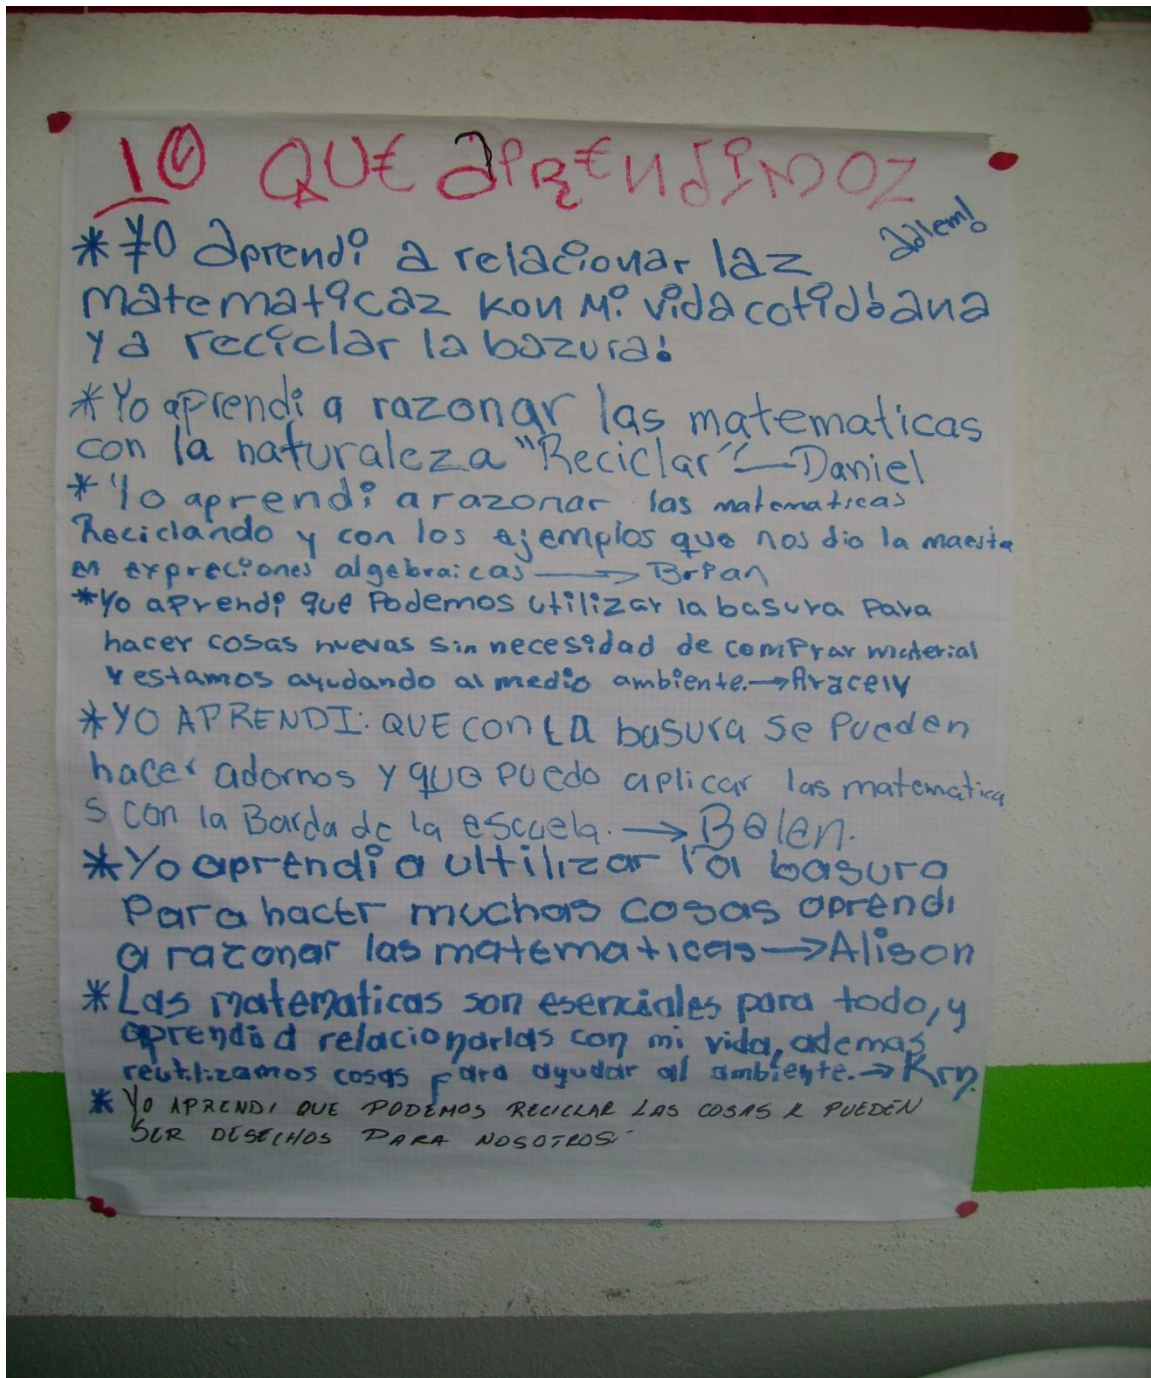 lo QUE aPRENdimoz
adlem!
* Yo aprendi a relacionar laz
matematicaz kon mi vida cotidiana
y a reciclar la bazura!
* Yo aprendi a razonar las matematicas
con la naturaleza "Reciclar" — Daniel
* Yo aprendi a razonar las matematicas
Reciclando y con los ejemplos que nos dio la maestra
en expreciones algebraicas → Brian
* Yo aprendi que Podemos utilizar la basura para
hacer cosas nuevas sin necesidad de comprar material
y estamos ayudando al medio ambiente. → Aracely
* YO APRENDI: QUE CON LA basura se pueden
hacer adornos y que puedo aplicar las matematica
s con la Barda de la escuela. → Belen.
* Yo aprendi a ultilizar la basura
Para hacer muchas cosas aprendi
a razonar las matematicas → Alison
* Las matematicas son esenciales para todo, y
aprendi a relacionarlas con mi vida, ademas
reutilizamos cosas para ayudar al ambiente. → Krn.
* YO APRENDI QUE PODEMOS RECICLAR LAS COSAS K PUEDEN
SER DESECHOS PARA NOSOTROS.